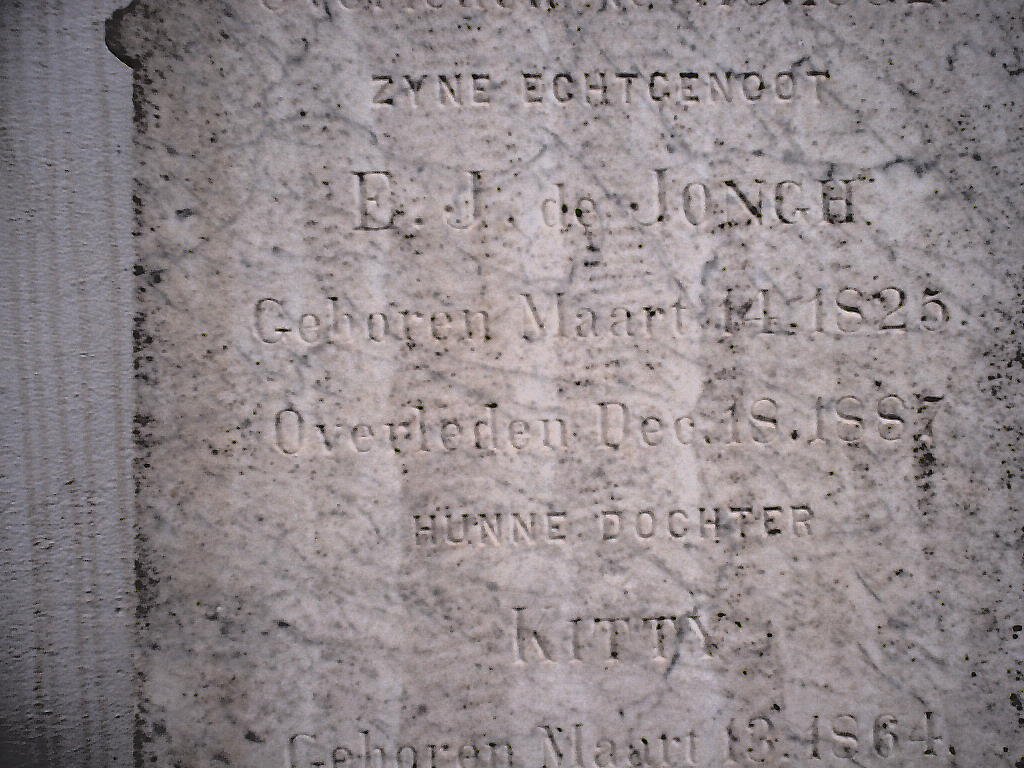 ZYNE ECHTGENOOT
E. J. de JONGH.
Geboren Maart 14. 1825.
Overleden Dec. 18. 1887
HUNNE DOCHTER
KITTY
Geboren Maart 13. 1864.